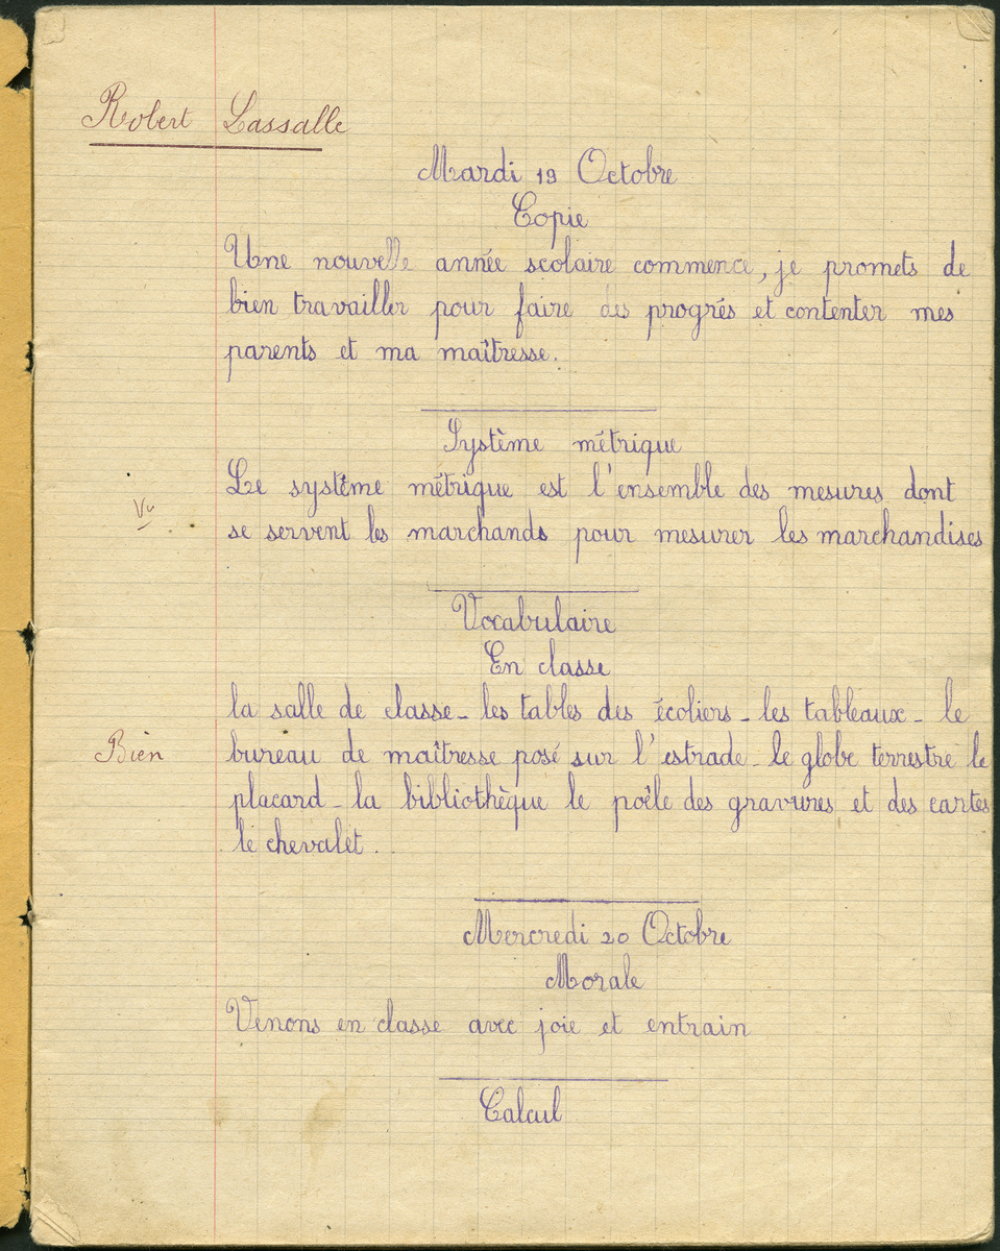 Robert Lassalle
Mardi 19 Octobre
Copie
Une nouvelle année scolaire commence, je promets de
bien travailler pour faire des progrés et contenter mes
parents et ma maîtresse.
Système métrique
Le système métrique est l'ensemble des mesures dont
Vu
se servent les marchands pour mesurer les marchandises
Vocabulaire
En classe
la salle de classe - les tables des écoliers - les tableaux - le
Bien
bureau de maîtresse posé sur l'estrade - le globe terrestre le
placard - la bibliothèque le poêle des gravures et des cartes
le chevalet.
Mercredi 20 Octobre
Morale
Venons en classe avec joie et entrain
Calcul